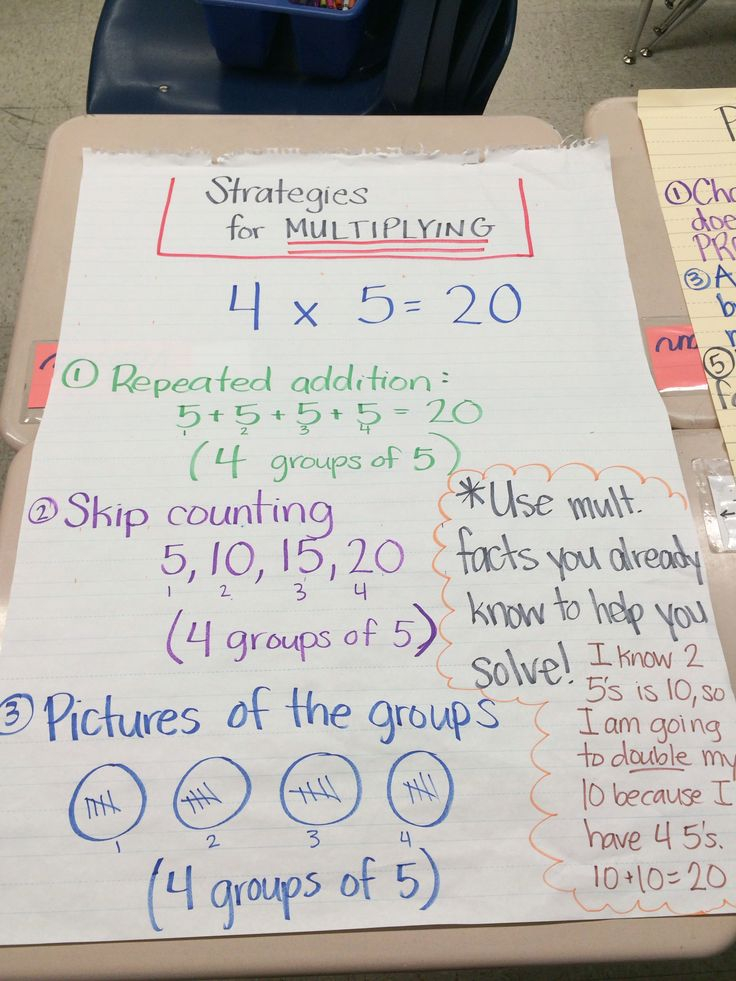 Strategies
for MULTIPLYING
4 x 5 = 20
① Repeated addition:
5 + 5 + 5 + 5 = 20
1 2 3 4
(4 groups of 5)
② Skip counting
5, 10, 15, 20
1 2 3 4
(4 groups of 5)
*Use mult.
facts you already
know to help you
solve!
I know 2
5's is 10, so
I am going
to double my
10 because I
have 4 5's.
10+10=20
③ Pictures of the groups
1 2 3 4
(4 groups of 5)
①
③ A
⑤